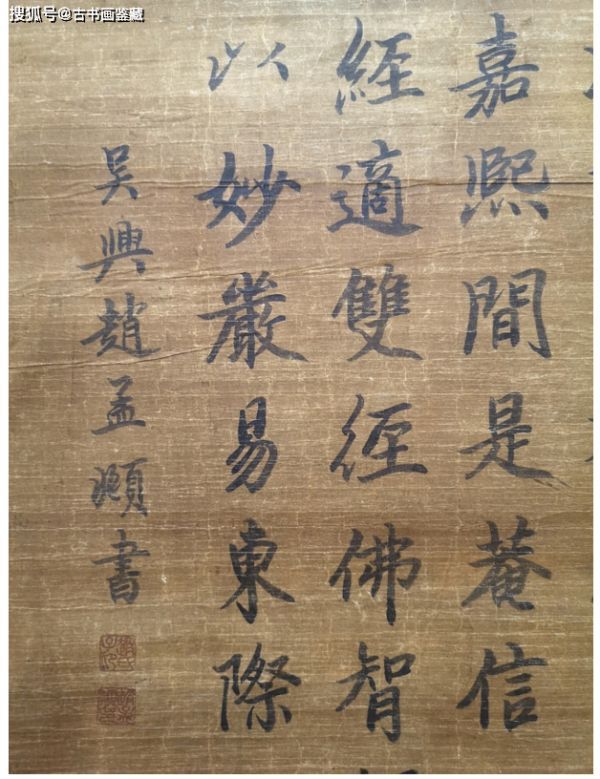 搜狐号@古书画鉴藏
嘉熙間是菴信
經適雙径佛智
以妙嚴易東際
吳興趙孟頫書